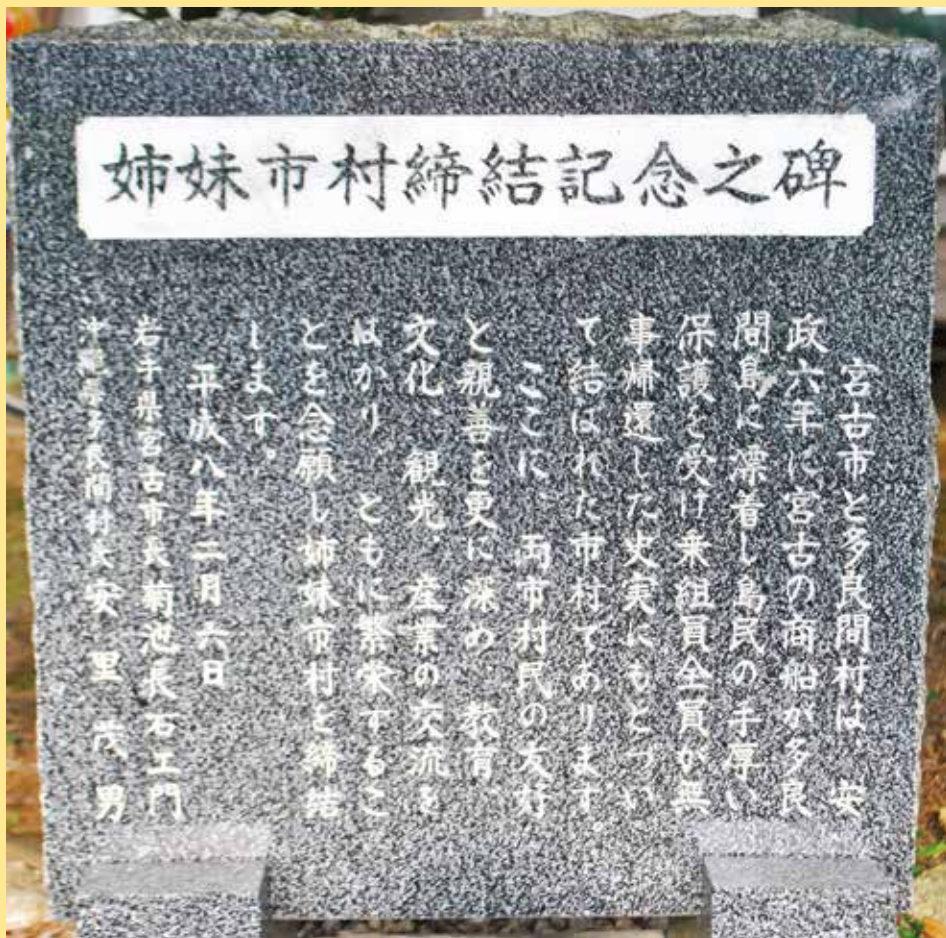 姉妹市村締結記念之碑
宮古市と多良間村は、安
政六年に宮古の商船が多良
間島に漂着し島民の手厚い
保護を受け乗組員全員が無
事帰還した史実にもとづい
て結ばれた市村であります
ここに、両市村民の友好
と親善を更に深め、教育、
文化、観光、産業の交流を
はかり、ともに繁栄するこ
とを念願し姉妹市村と締結
します。
平成八年二月六日
岩手県宮古市長菊池長右ェ門
沖縄県多良間村長安里茂男